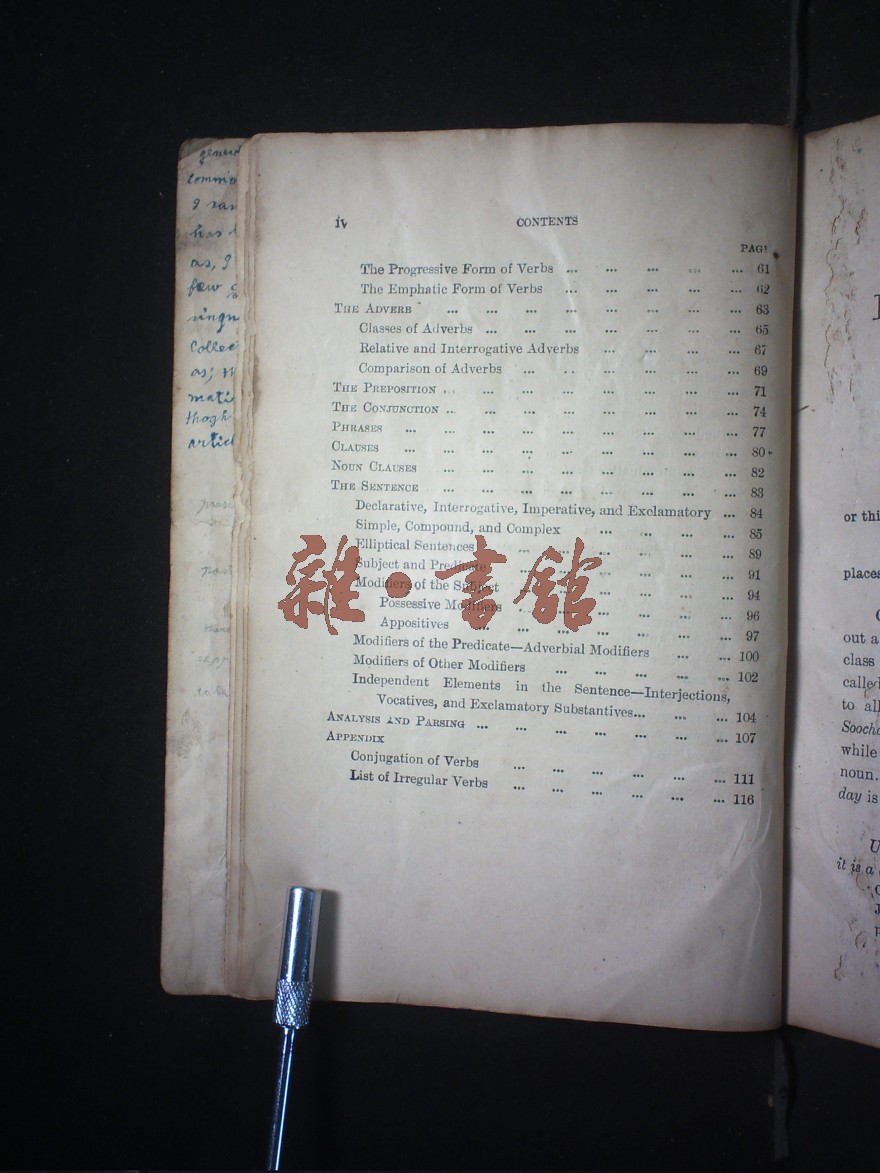 iv CONTENTS
PAGE
The Progressive Form of Verbs ... ... ... ... ... 61
The Emphatic Form of Verbs ... ... ... ... ... 62
THE ADVERB ... ... ... ... ... ... ... ... 63
Classes of Adverbs ... ... ... ... ... ... ... 65
Relative and Interrogative Adverbs ... ... ... ... 67
Comparison of Adverbs ... ... ... ... ... ... 69
THE PREPOSITION ... ... ... ... ... ... ... ... 71
THE CONJUNCTION ... ... ... ... ... ... ... ... 74
PHRASES ... ... ... ... ... ... ... ... ... 77
CLAUSES ... ... ... ... ... ... ... ... ... 80
NOUN CLAUSES ... ... ... ... ... ... ... ... 82
THE SENTENCE ... ... ... ... ... ... ... ... 83
Declarative, Interrogative, Imperative, and Exclamatory ... 84
Simple, Compound, and Complex ... ... ... ... 85
Elliptical Sentences ... ... ... ... ... ... 89
Subject and Predicate ... ... ... ... ... ... 91
Modifiers of the Subject ... ... ... ... ... ... 94
Possessive Modifiers ... ... ... ... ... ... 96
Appositives ... ... ... ... ... ... ... 97
Modifiers of the Predicate—Adverbial Modifiers ... ... 100
Modifiers of Other Modifiers ... ... ... ... ... 102
Independent Elements in the Sentence—Interjections,
Vocatives, and Exclamatory Substantives... ... ... 104
ANALYSIS AND PARSING ... ... ... ... ... ... ... 107
APPENDIX
Conjugation of Verbs ... ... ... ... ... ... 111
List of Irregular Verbs ... ... ... ... ... ... 116
雜·書館
has
as,
few
as;
or thi
places
out a
class
called
to all
Soocho
while
noun.
day is
it is a